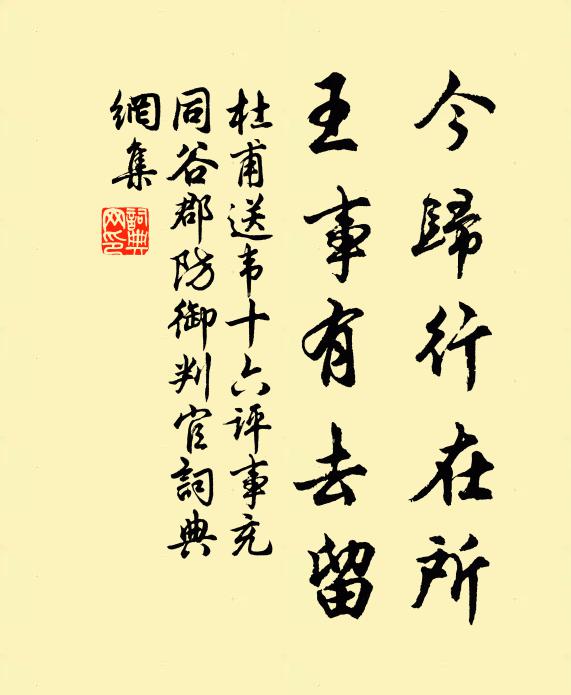 今歸行在所
王事有去留
杜甫送韦十六評事充
同谷郡防御判官詞典
網集
詞典
网印